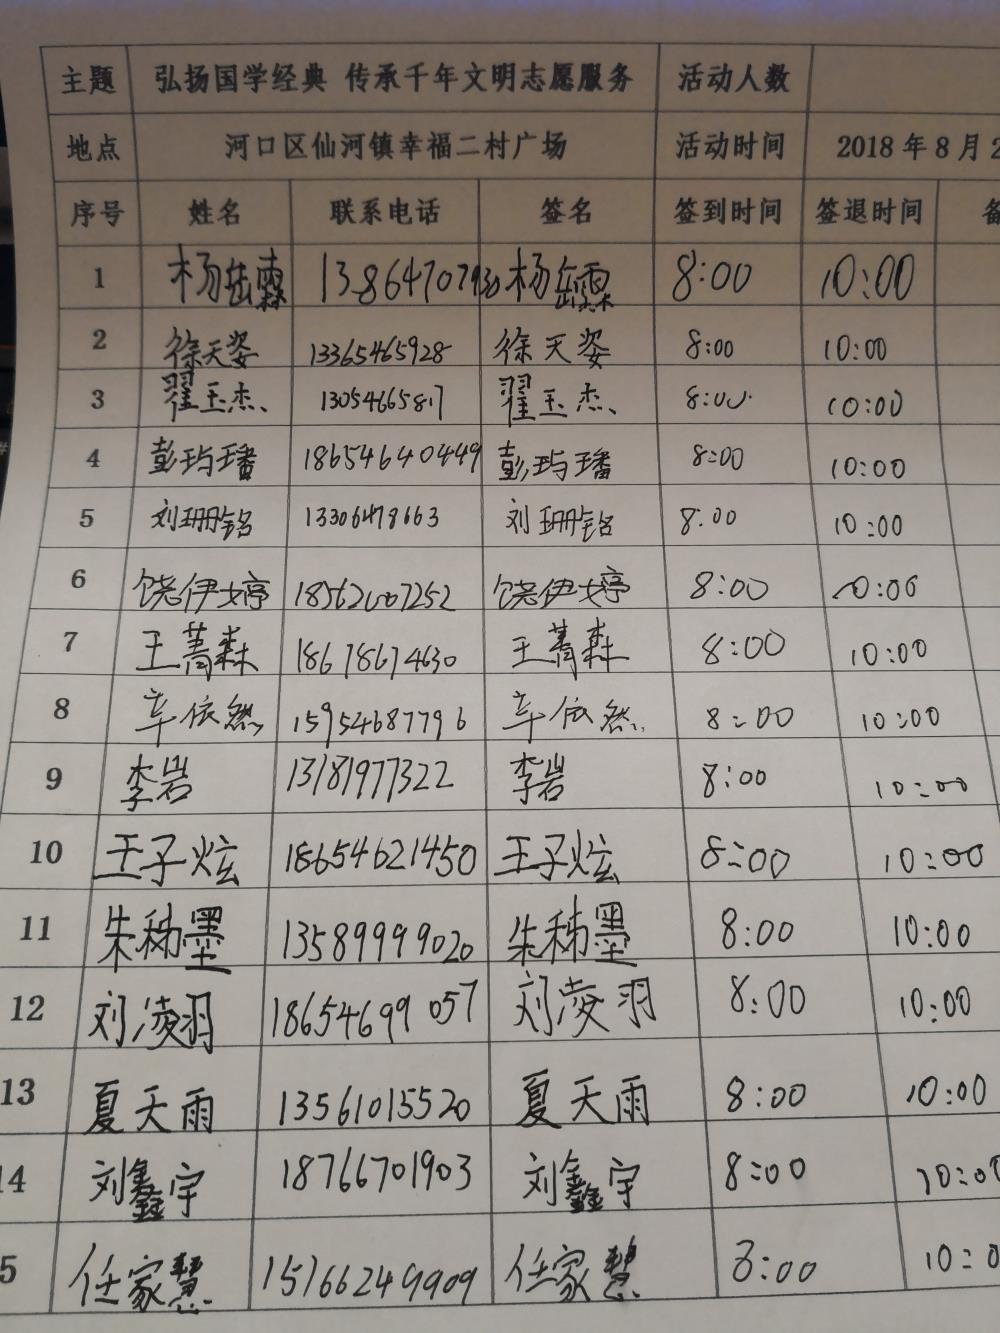 主题 弘扬国学经典 传承千年文明志愿服务 活动人数
地点 河口区仙河镇幸福二村广场 活动时间 2018年8月2
序号 姓名 联系电话 签名 签到时间 签退时间 备
1 杨岳霖 13864707930 杨岳霖 8:00 10:00
2 徐天姿 13365465928 徐天姿 8:00 10:00
3 翟玉杰 13054665817 翟玉杰 8:00 10:00
4 彭玙璠 18654640449 彭玙璠 8:00 10:00
5 刘珊铭 13306478663 刘珊铭 8:00 10:00
6 饶伊婷 18562007252 饶伊婷 8:00 10:00
7 王菁森 18678674630 王菁森 8:00 10:00
8 辛依然 15954687796 辛依然 8:00 10:00
9 李岩 13181977322 李岩 8:00 10:00
10 王子炫 18654621450 王子炫 8:00 10:00
11 朱秭墨 13589999020 朱秭墨 8:00 10:00
12 刘凌羽 18654699057 刘凌羽 8:00 10:00
13 夏天雨 13561015520 夏天雨 8:00 10:00
14 刘鑫宇 18766701903 刘鑫宇 8:00 10:00
5 任家慧 15166249909 任家慧 8:00 10:0